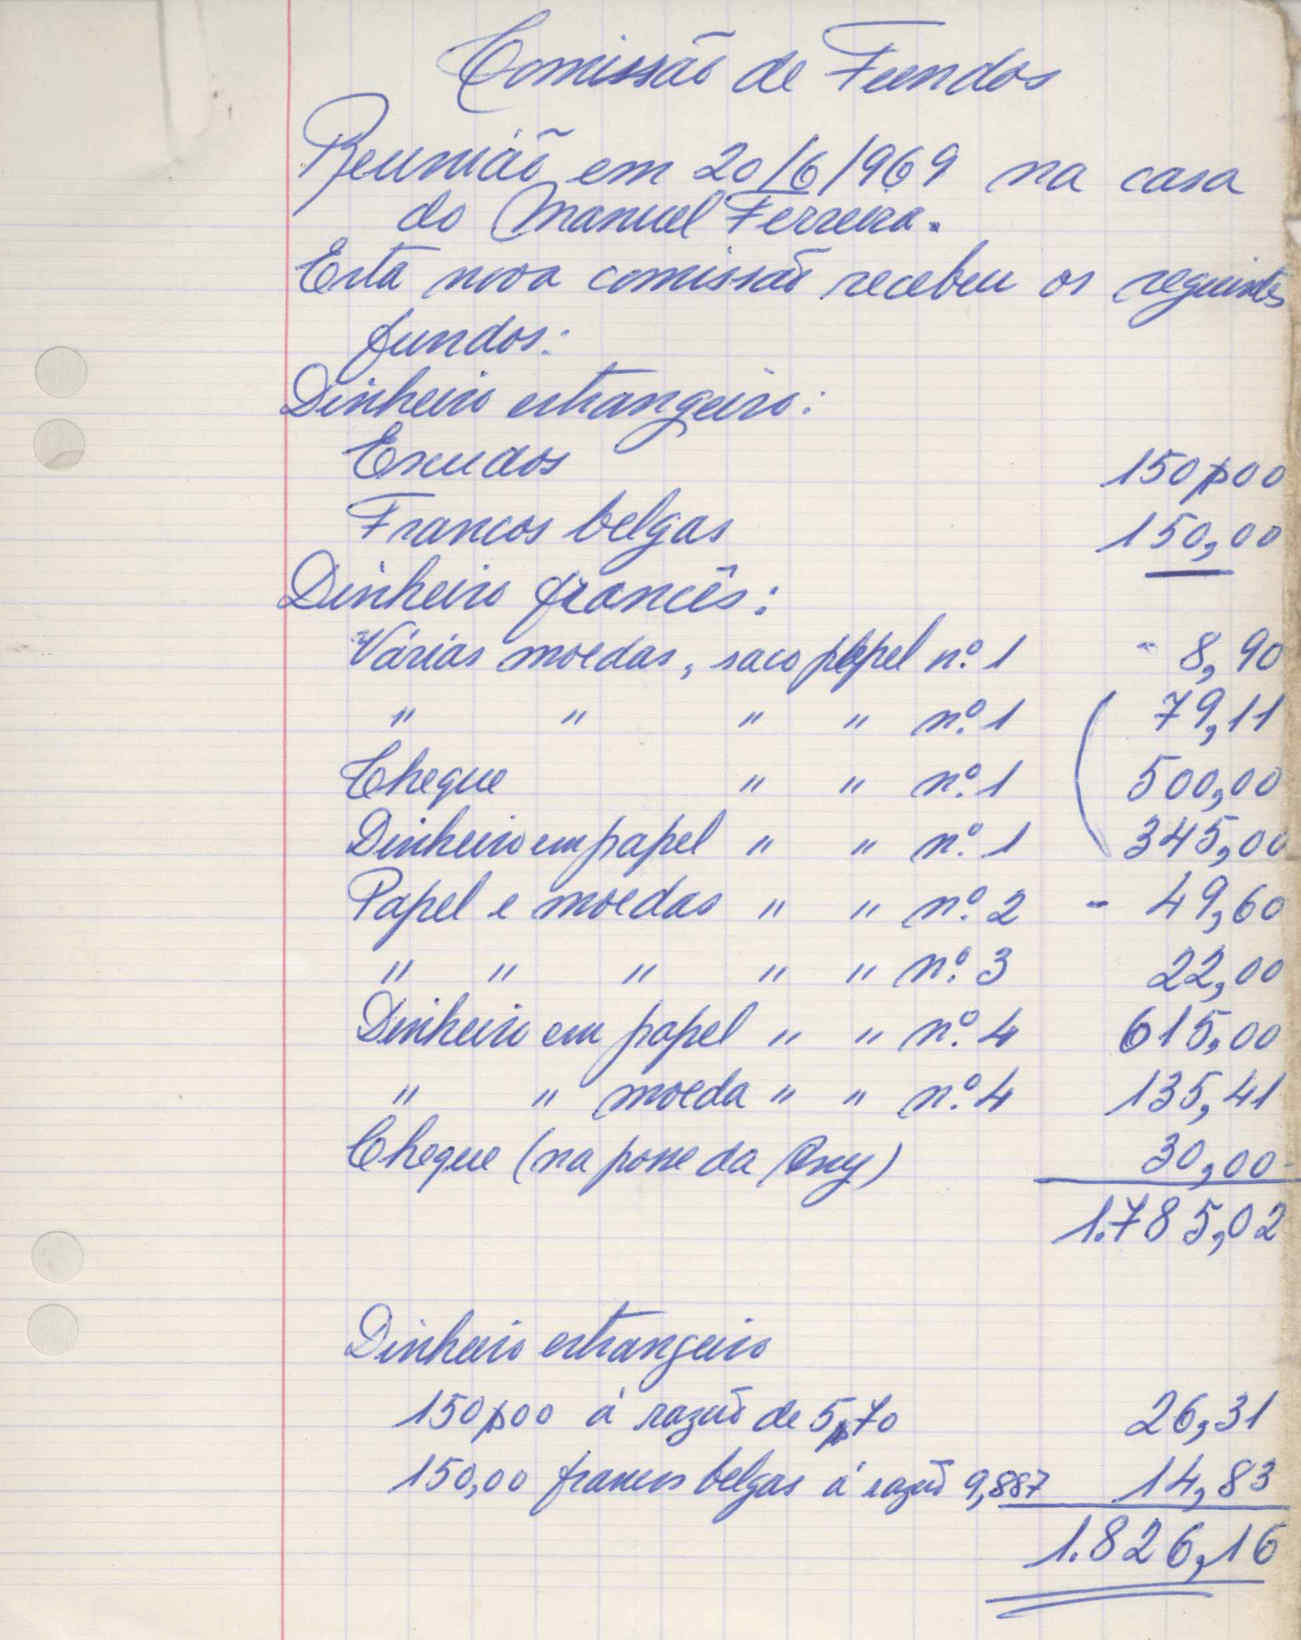 Comissão de Fundos
Reunião em 20/6/969 na casa
do Manuel Ferreira.
Esta nova comissão recebeu os seguintes
fundos:
Dinheiro estrangeiro:
Escudos 150$00
Francos belgas 150,00
Dinheiro francês:
Várias moedas, saco papel nº. 1 - 8,90
" " " " nº. 1 79,11
Cheque " " nº. 1 500,00
Dinheiro em papel " " nº. 1 345,00
Papel e moedas " " nº. 2 - 49,60
" " " " " nº. 3 22,00
Dinheiro em papel " " nº. 4 615,00
" " moeda " " nº. 4 135,41
Cheque (na posse da Any) 30,00-
1.785,02
Dinheiro estrangeiro
150$00 á razão de 5$70 26,31
150,00 francos belgas á razão 9,887 14,83
1.826,16